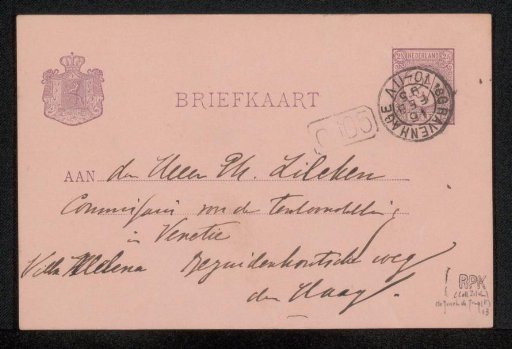 NEDERLAND
BRIEFKAART
'S GRAVENHAGE
AAN den Heer Ph. Zilcken
Commissaris van de Tentoonstelling
in Venetie
Villa Helena Bezuidenhoutsche weg
den Haag.
RPK